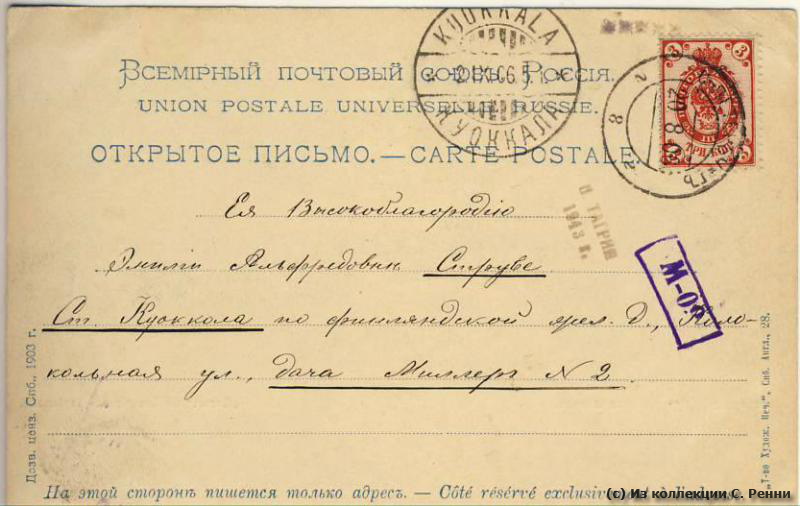 KUOKKALA
КУОККАЛА
3 3
ВСЕМІРНЫЙ ПОЧТОВЫЙ СОЮЗЪ. РОССІЯ.
UNION POSTALE UNIVERSELLE. RUSSIE.
ОТКРЫТОЕ ПИСЬМО. — CARTE POSTALE.
П ТАГРИН
1943 г.
Ея Высокоблагородію
Эмиліи Альфредовнѣ Струве
Ст. Куоккола по финляндской жел. д., Коло-
кольная ул., дача Миллеръ N 2.
М-09
Дозв. ценз. Спб., 1903 г.
"Т-во Худож. Печ.", Спб. Англ., 28.
На этой сторонѣ пишется только адресъ. — Côté réservé exclusiv
(c) Из коллекции С. Ренни